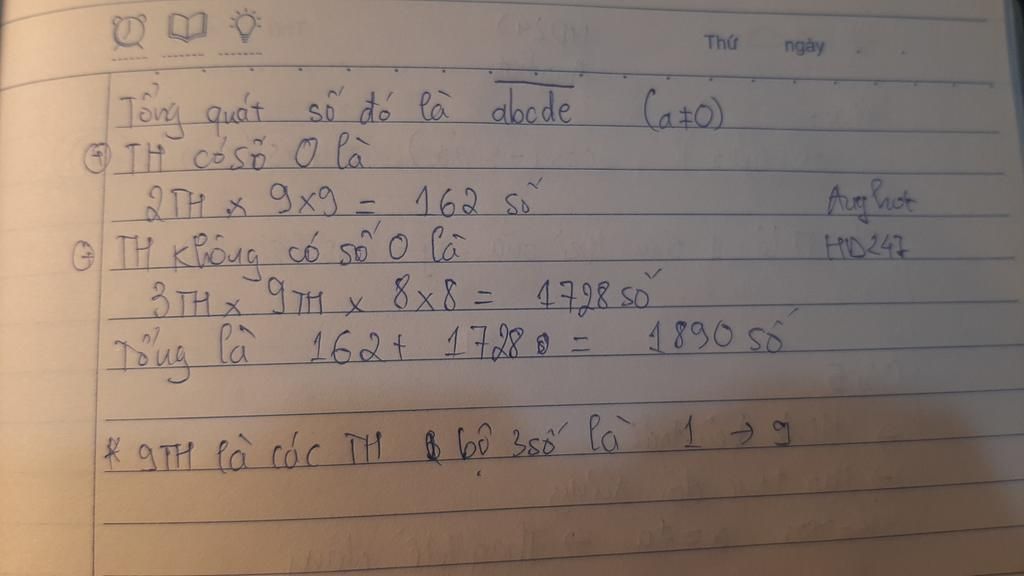 Thứ ngày
Tổng quát số đó là abcde (a≠0)
+ TH có số 0 là
2TH x 9x9 = 162 số
+ TH không có số 0 là
HD247
3TH x 9TH x 8x8 = 1728 số
Tổng là 162 + 1728 = 1890 số
* 9TH là các TH bộ 3 số là 1 → 9